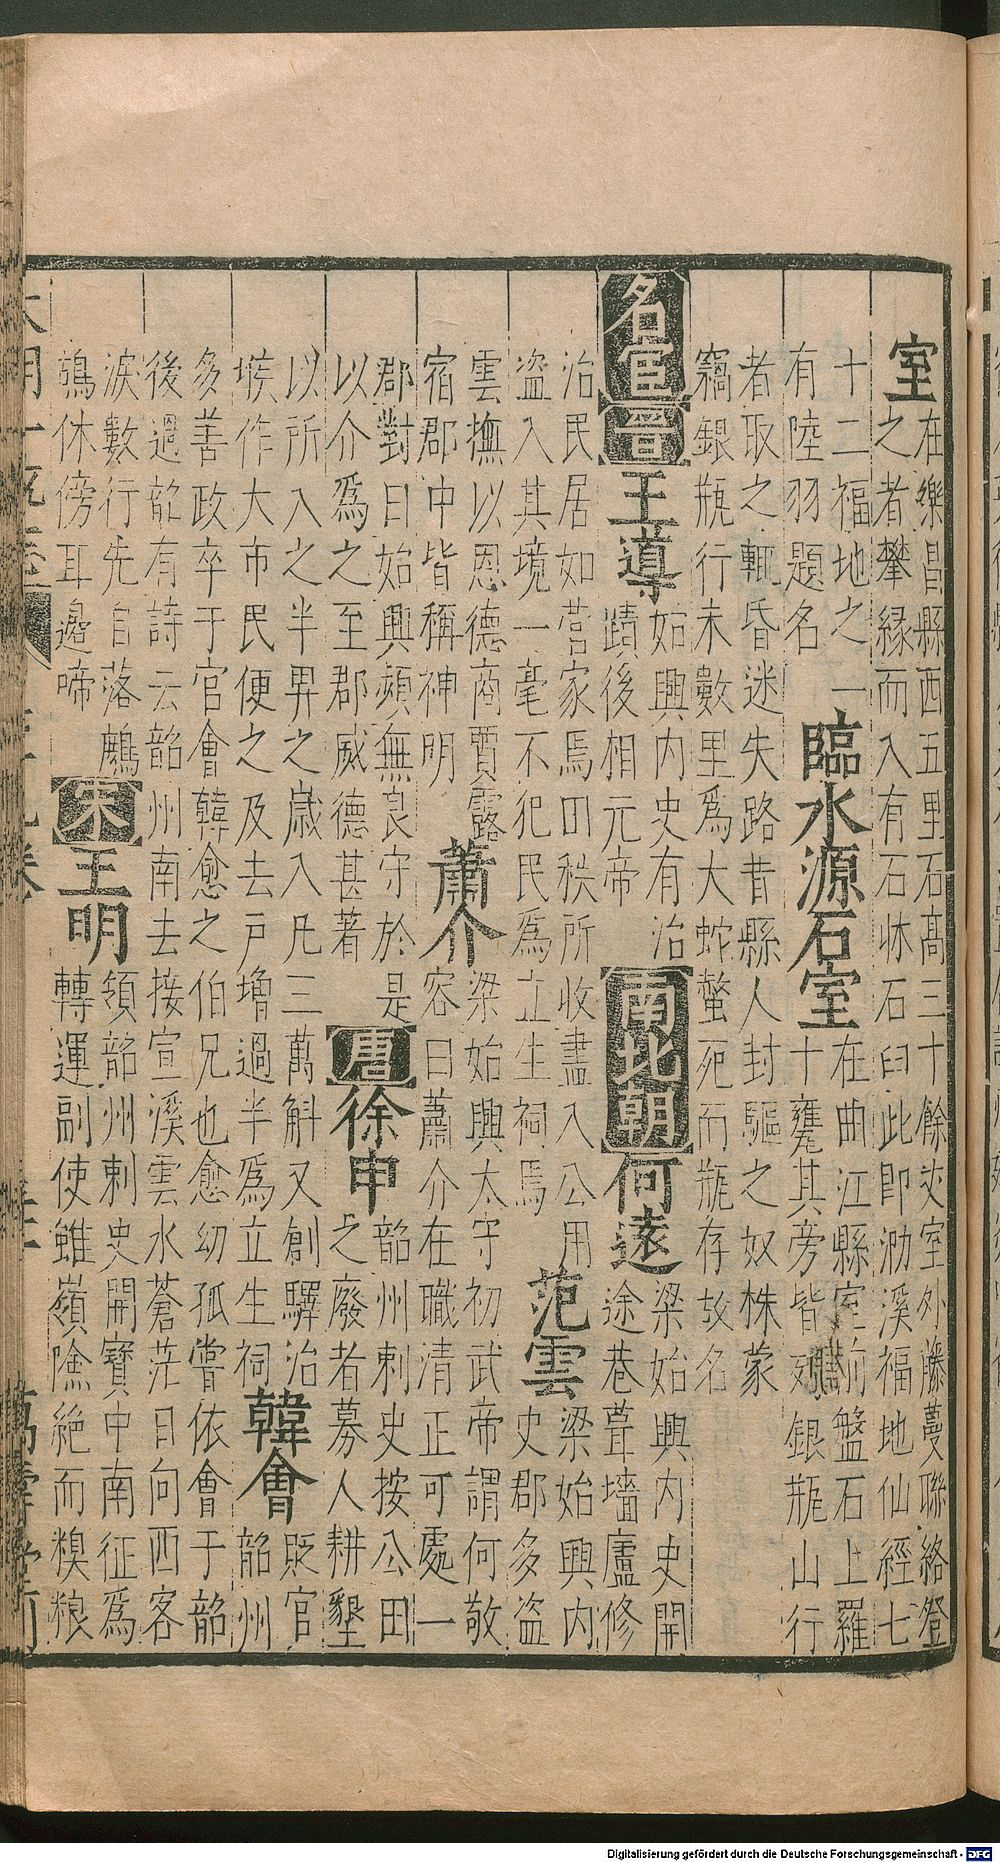 室在樂昌縣西五里石髙三十餘丈室外藤蔓聮絡登
之者攀縁而入有石牀石臼此即泐溪福地仙經七
十二福地之一臨水源石室在曲江縣室前盤石上羅
有陸羽題名十甕其旁皆列銀瓶山行
者取之輒昏迷失路昔縣人封驅之奴株蒙
竊銀瓶行未數里爲大蛇螫死而瓶存故名
名宦晉王導始興内史有治蹟後相元帝南北朝何逺梁始興内史開途巷葺墻廬修
治民居如營家焉田秩所收盡入公用范雲梁始興内史郡多盗
盗入其境一毫不犯民爲立生祠焉
雲撫以恩德商賈露宿郡中皆稱神明蕭介梁始興太守初武帝謂何敬
容曰蕭介在職清正可處一
郡對曰始興頻無良守於是
以介爲之至郡威德甚著唐徐申韶州刺史按公田之廢者募人耕墾
以所入之半畀之歲入凡三萬斛又創驛治
堠作大市民便之及去戸增過半爲立生祠韓會貶官韶州
多善政卒于官會韓愈之伯兄也愈幼孤嘗依會于韶
後過韶有詩云韶州南去接宣溪雲水蒼茫日向西客
淚數行先自落鷓
鴣休傍耳邉啼宋王明領韶州刺史開寳中南征爲
轉運副使雖嶺險絶而糗粮
Digitalisierung gefördert durch die Deutsche Forschungsgemeinschaft - DFG